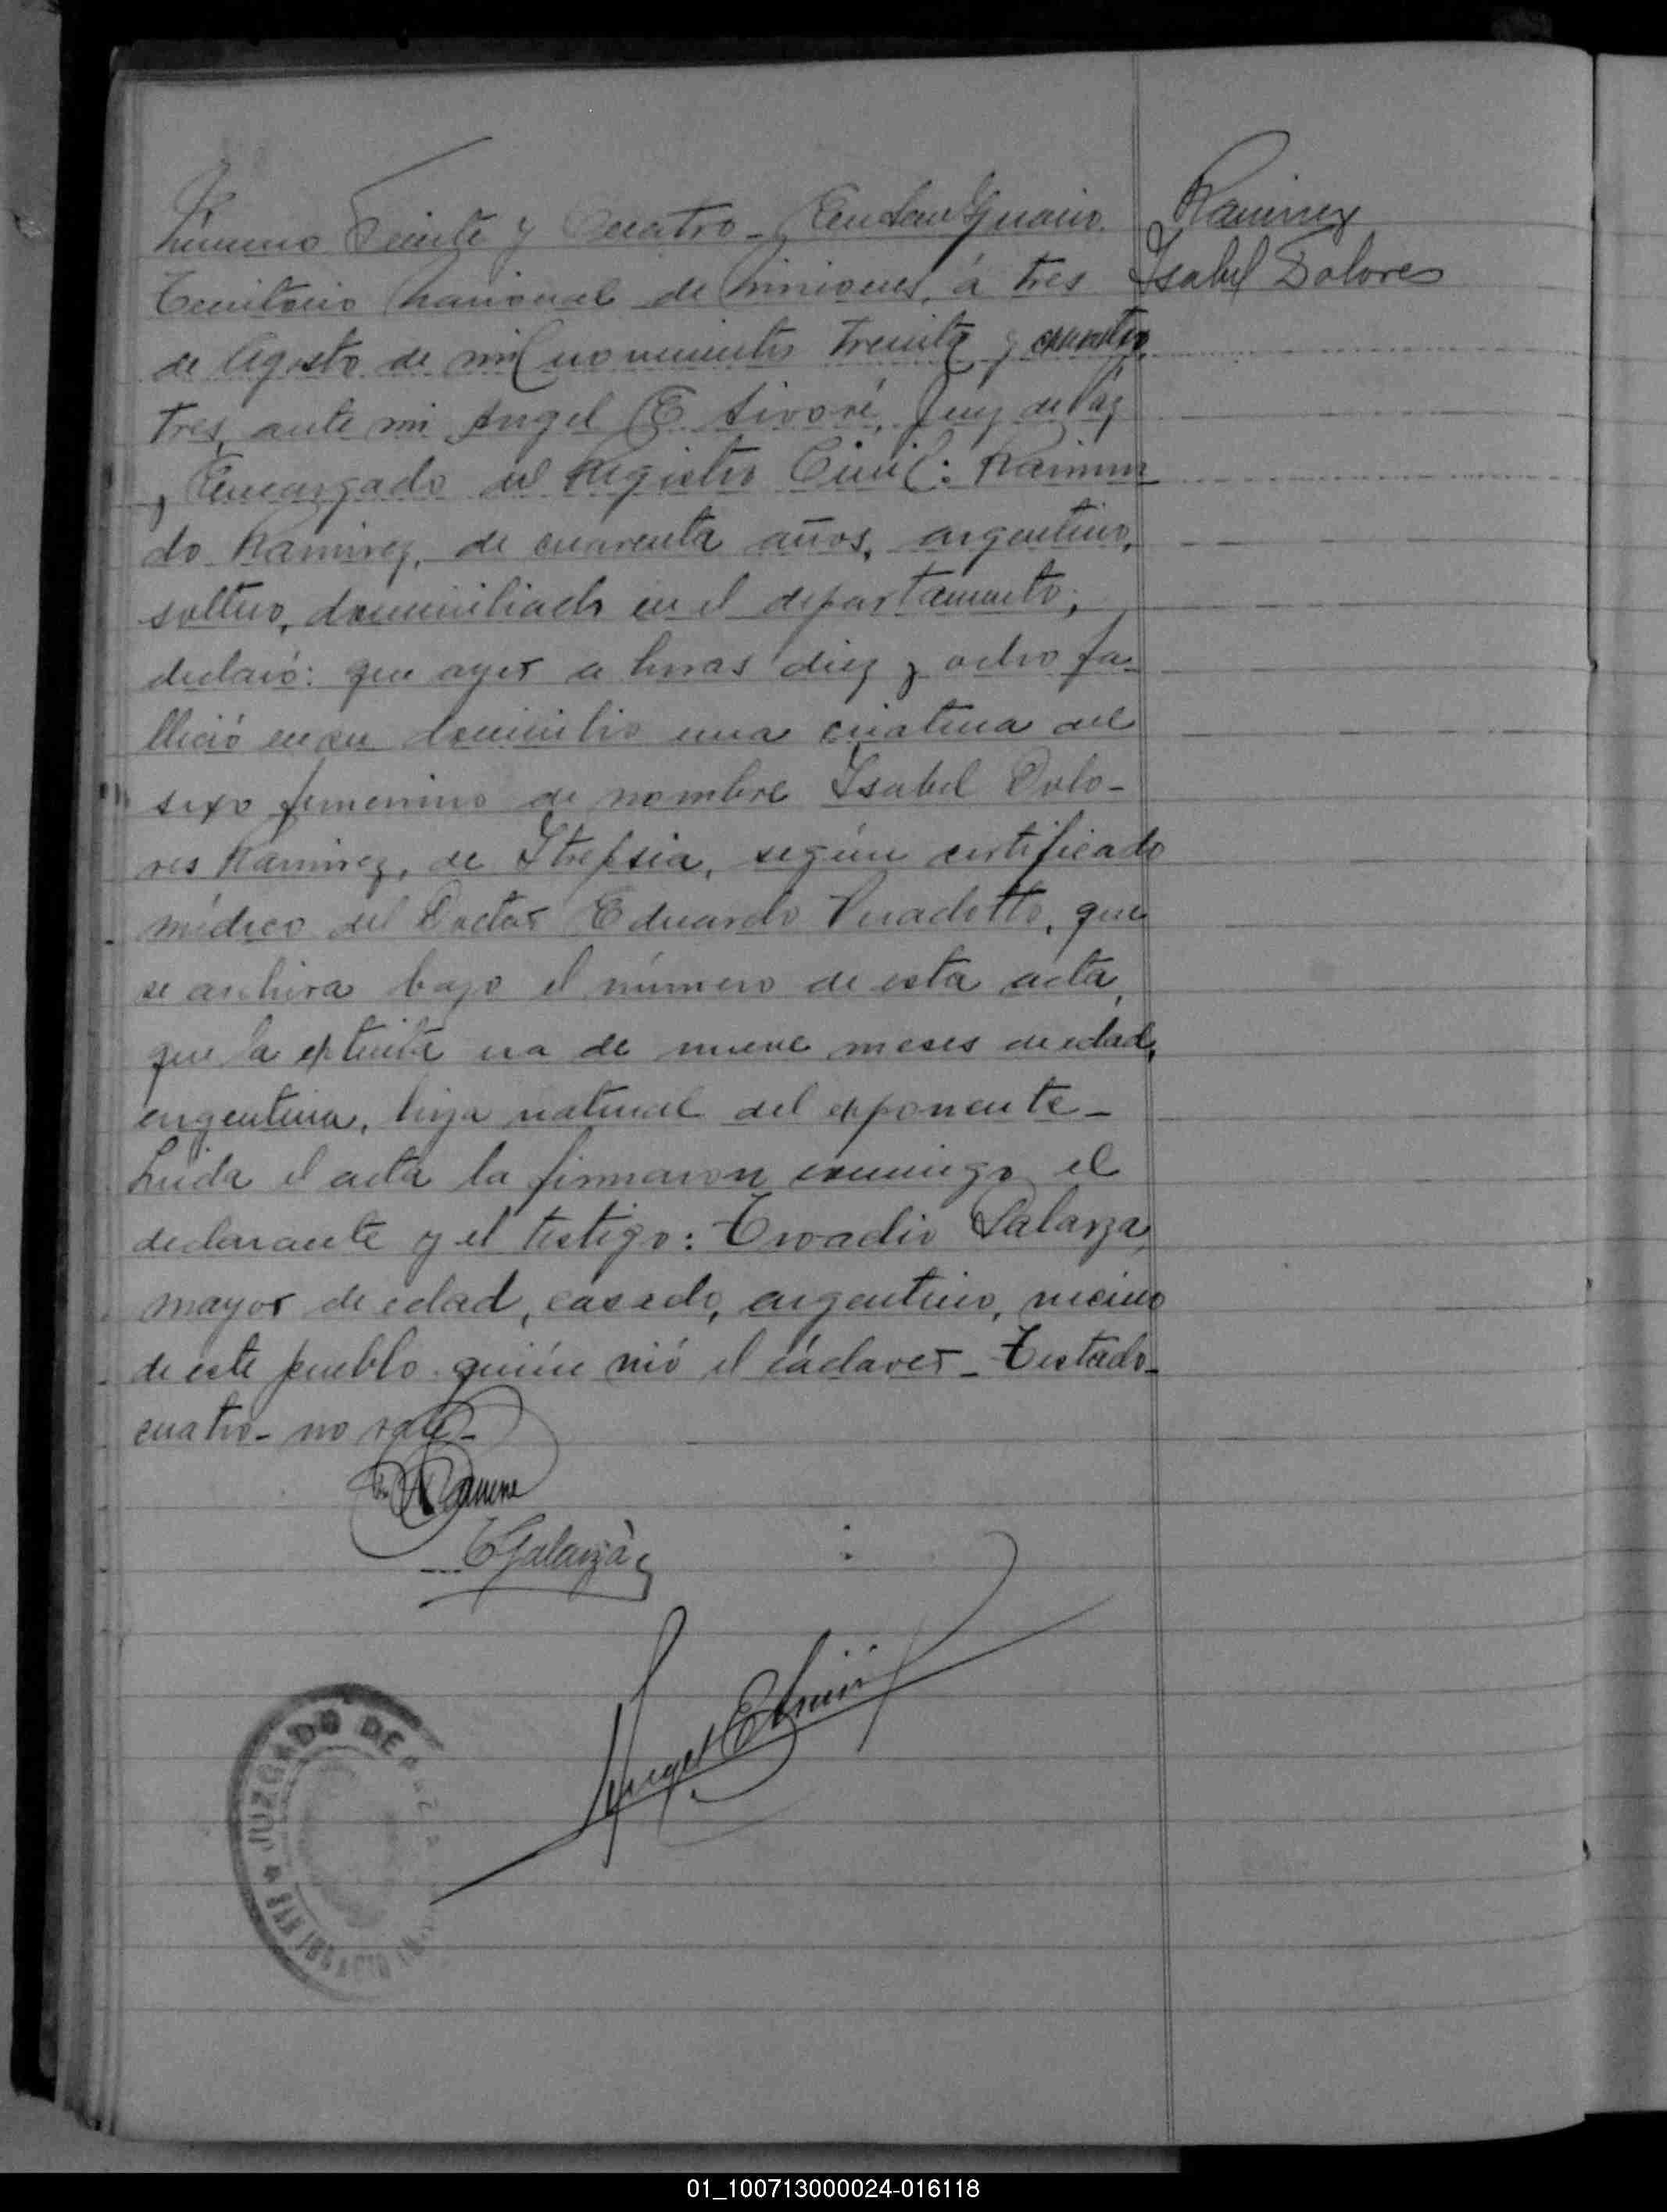 Número Veinte y Cuatro - En San Ygnacio
Ramirez
Territorio Nacional de Misiones, á tres
Isabel Dolores
de Agosto de mil novecientos treinta y cuatro
tres, ante mi Angel E. Sivori, Juez de Paz
y Encargado del Registro Civil: Raimun
do Ramirez, de cuarenta años, argentino,
soltero, domiciliado en el departamento,
declaró: que ayer a horas diez y ocho fa-
lleció en su domicilio una criatura del
sexo femenino de nombre Isabel Dolo-
res Ramirez, de Strepsia, según certificado
médico del Doctor Eduardo, que
se archiva bajo el número de esta acta,
que la extinta era de nueve meses de edad,
argentina, hija natural del exponente -
Leida el acta la firmaron conmigo el
declarante y el testigo: Troadio Galarza,
mayor de edad, casado, argentino, vecino
de este pueblo quién vió el cádaver - Testado -
cuatro - no vale -
R Ramirez
T Galarza
Angel E Sivori
JUZGADO DE PAZ
SAN IGNACIO
01_100713000024-016118